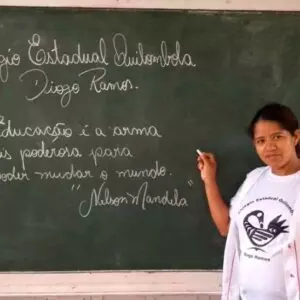 gio Estadual Quilombola
Diogo Ramos.
Educação é a arma
is poderosa para
oder mudar o mundo.
"Nelson Mandela"
Colégio Estadual Quilombola
Diogo Ramos